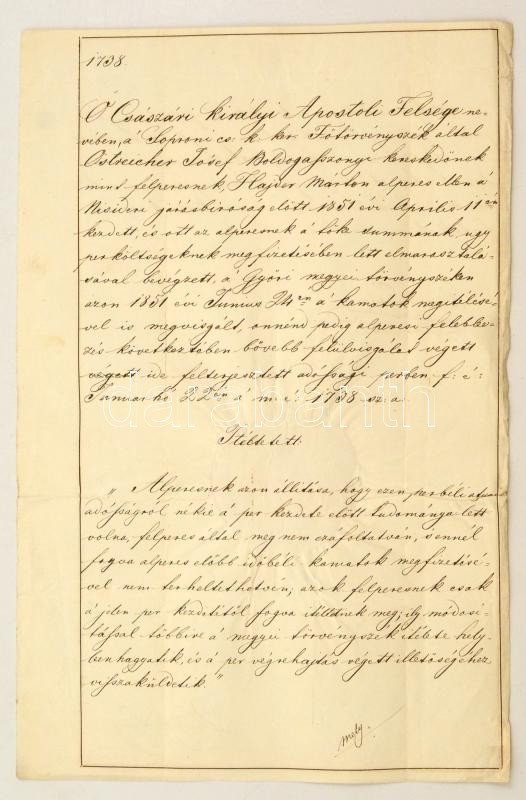 1738.
Ő Császári királyi Apostoli Felsége ne-
vében, a' Soproni cs: k. ker. Főtörvényszék által
Ostreicher Josef Boldogasszonyi kereskedőnek
mint felperesnek, Hajder Marton alperes ellen a'
Nisideri járásbiróság előtt 1851 évi Aprilis 11én
kezdett, és ott az alperesnek a' tőke summának, ugy
perköltségeknek megfizetésében lett elmarasztalá-
sával bevégzett, a' Győri megyei törvényszéken
azon 1851 évi Junius 24én a' kamatok megitélésé-
vel is megvisgált, onnénd pedig alperesi felebbe-
zés következtében bővebb felülvisgálat végett
végett ide felterjesztett adóssági perben f: é:
Januarhó 22én á m: é: 1738 sz: a:
Itéltetett:
„Alperesnek azon állitása, hogy ezen perbéli
adósságról nékie a' per kezdete előtt tudománya lett
volna, felperes által meg nem czáfoltatván, s ennél
fogva alperes előbb időbéli kamatok megfizetésé-
vel nem terheltethetvén; azok felperesnek csak
a' jelen per kezdetétől fogva itéltetnek meg; ily modosi-
tással többire a' megyei törvényszék itélete hely-
benhagyatik, és a' per végrehajtás végett illetőségéhez
visszaküldetik."
mely.
darabanth